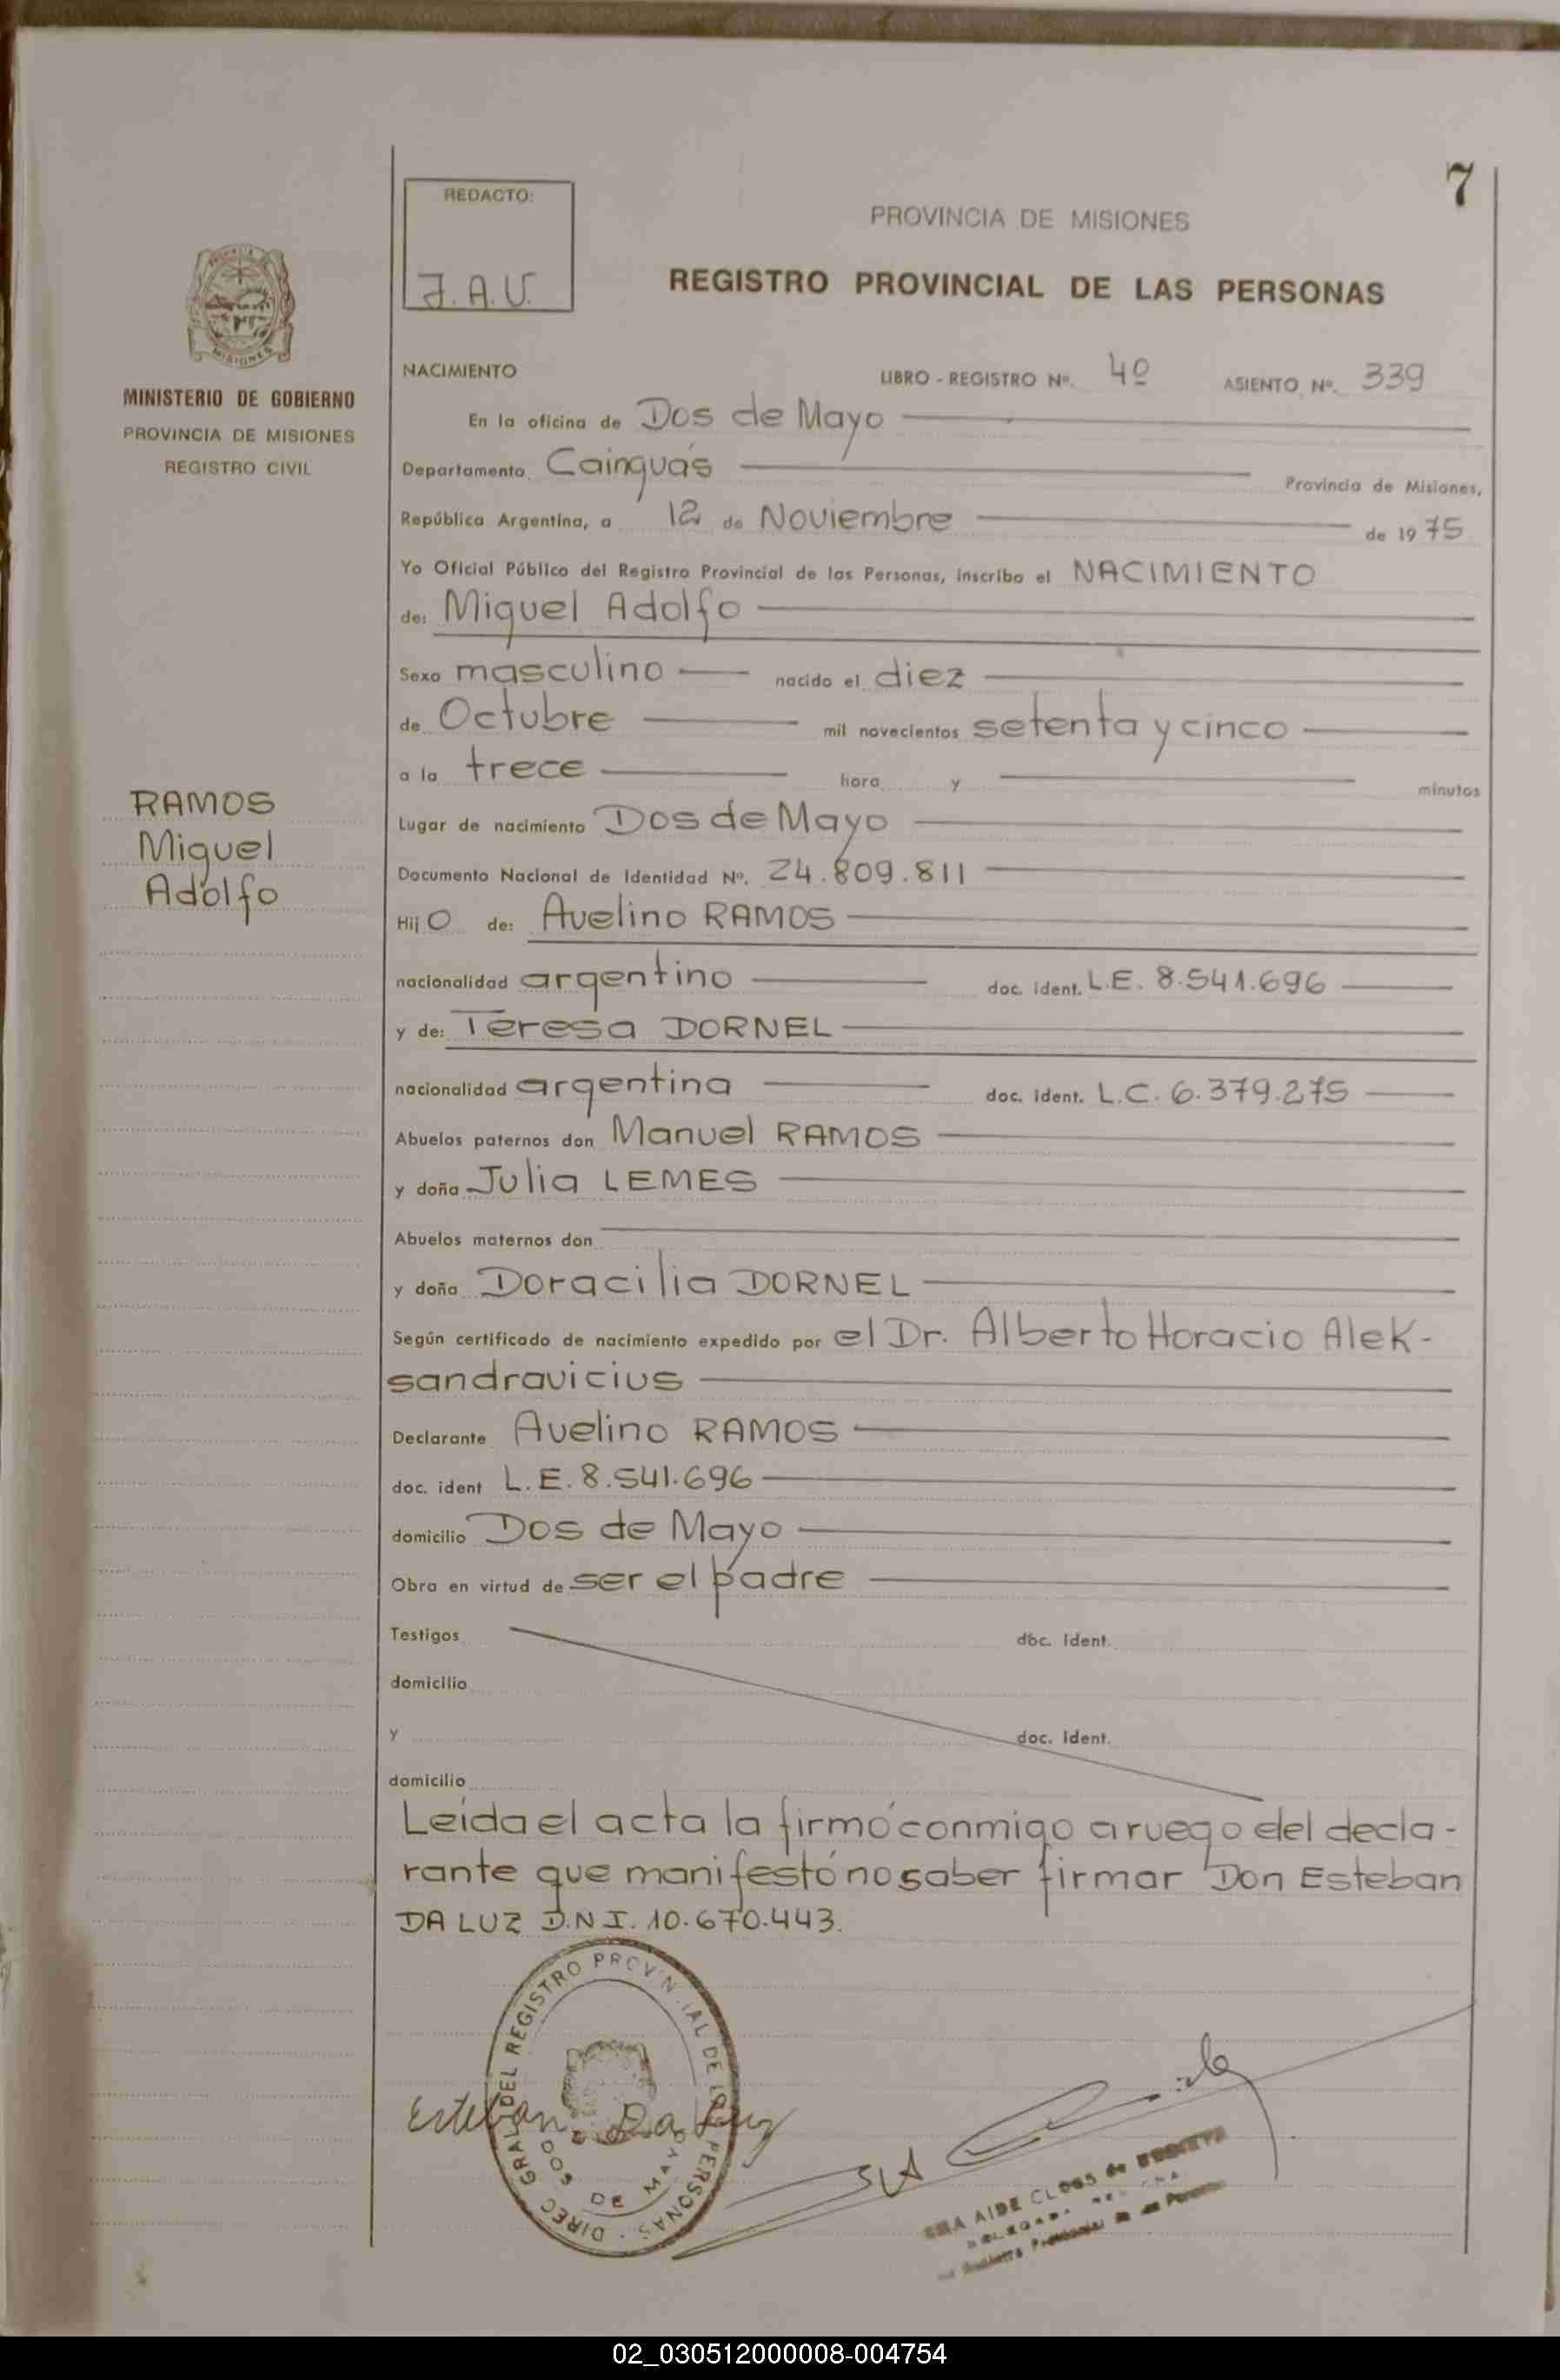 7
REDACTO:
J.A.V.
PROVINCIA DE MISIONES
REGISTRO PROVINCIAL DE LAS PERSONAS
MISIONES
MINISTERIO DE GOBIERNO
PROVINCIA DE MISIONES
REGISTRO CIVIL
RAMOS
Miguel
Adolfo
NACIMIENTO LIBRO - REGISTRO Nº. 4º ASIENTO Nº. 339
En la oficina de Dos de Mayo
Departamento Cainguás Provincia de Misiones,
República Argentina, a 12 de Noviembre de 1975
Yo Oficial Público del Registro Provincial de las Personas, inscribo el NACIMIENTO
de: Miguel Adolfo
Sexo masculino nacido el diez
de Octubre mil novecientos setenta y cinco
a la trece hora y minutos
Lugar de nacimiento Dos de Mayo
Documento Nacional de Identidad Nº. 24.809.811
Hijo de: Avelino RAMOS
nacionalidad argentino doc. ident. L.E. 8.541.696
y de: Teresa DORNEL
nacionalidad argentina doc. ident. L.C. 6.379.275
Abuelos paternos don Manuel RAMOS
y doña Julia LEMES
Abuelos maternos don
y doña Doracilia DORNEL
Según certificado de nacimiento expedido por el Dr. Alberto Horacio Alek-
sandravicius
Declarante Avelino RAMOS
doc. ident L.E. 8.541.696
domicilio Dos de Mayo
Obra en virtud de ser el padre
Testigos doc. ident.
domicilio
y doc. ident.
domicilio
Leída el acta la firmó conmigo a ruego del decla-
rante que manifestó no saber firmar Don Esteban
DA LUZ D.N.I. 10.670.443.
DIREC GRAL DEL REGISTRO PROVINCIAL DE LAS PERSONAS
DOS DE MAYO
Esteban Da Luz
AIDE CLOSS de
02_030512000008-004754